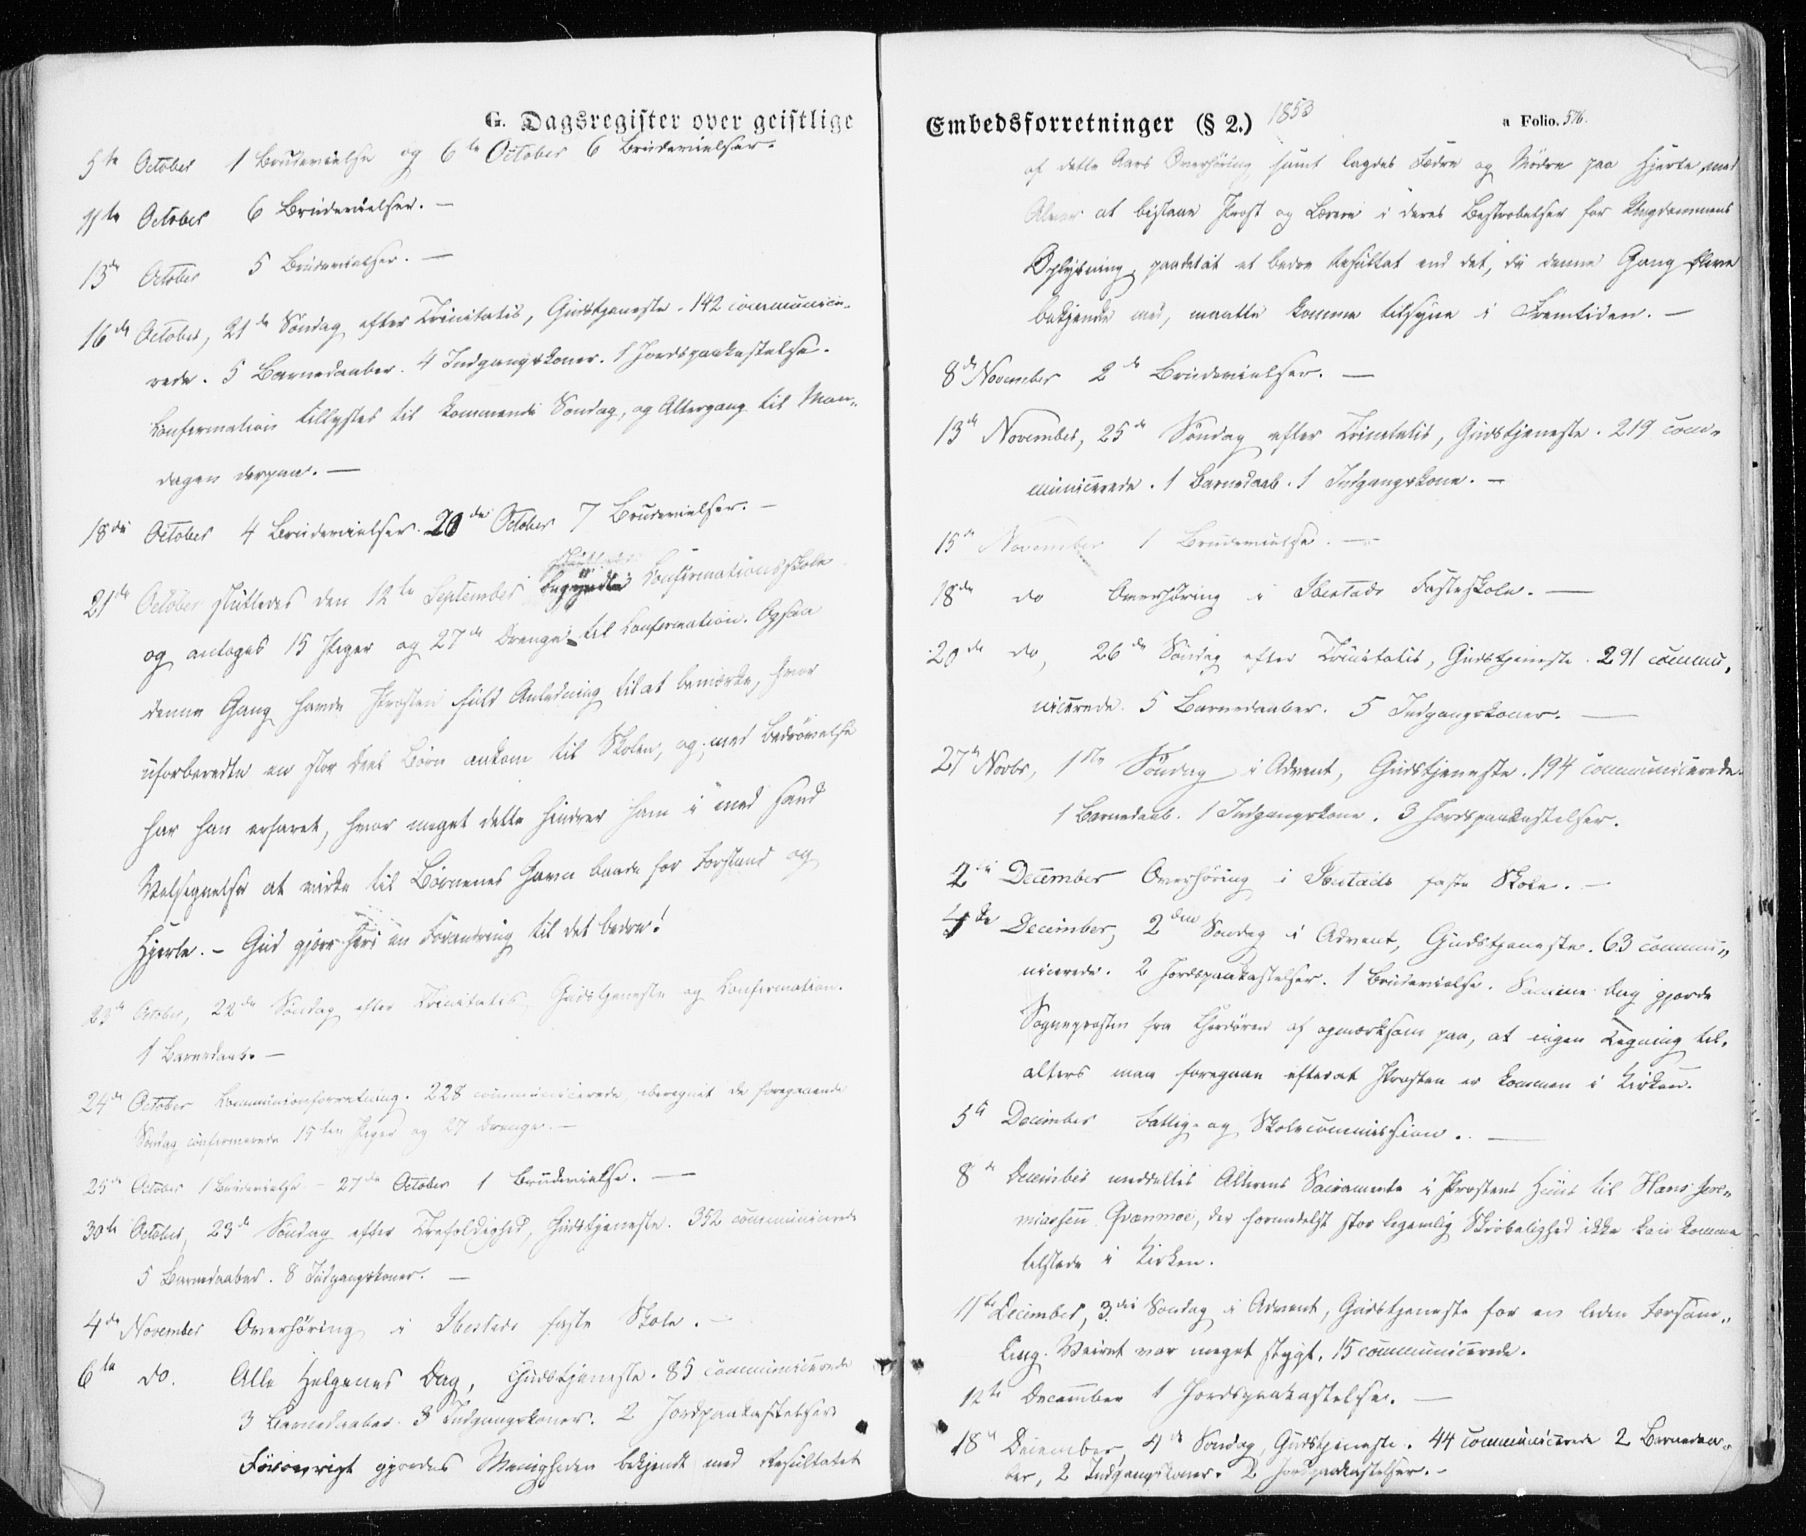 G. Dagsregister over geistlige
5te October 1 Brudevielse og 6te October 6 Brudevielser.
11te October 6 Brudevielser. —
13de October 5 Brudevielser. —
16de October, 21de Søndag efter Trinitatis, Gudstjeneste. 142 communice-
rede. 5 Barnedaaber. 4 Indgangskoner. 1 Jordspaakastelse.
Confirmation tillystes til kommende Søndag, og Altergang til Man-
dagen derpaa. —
18de October 4 Brudevielser. 20de October 7 Brudevielser. —
21de October sluttedes den 12te September begyndte Confirmationsskole
og antoges 15 Piger og 27de Drenge til Confirmation. Ogsaa
denne Gang havde Provsten fuld Anledning til at bemærke, hvor
uforberedte en stor Deel Børn ankom til Skolen, og med Bedrøvelse
har han erfaret, hvor meget dette hindrer ham i med Haand
Velsignelse at virke til Børnenes Gavn baade for Forstand og
Hjerte. — Gud gjøre heri en Forandring til det bedre!
23de October, 22de Søndag efter Trinitatis, Gudstjeneste og Confirmation.
1 Barnedaab. —
24de October Communionforretning. 228 communicerede, iberegnet de foregaaende
Søndag confirmerede 15ten Piger og 27 Drenge. —
25de October 1 Brudevielse — 27de October 1 Brudevielse. —
30te October, 23de Søndag efter Trefoldighed, Gudstjeneste. 352 communicerede
5 Barnedaaber. 8 Indgangskoner. —
4de November Overhøring i Ibestads faste Skole. —
6te do. Alle Helgenes Dag, Gudstjeneste. 85 communicerede
3 Barnedaaber. 3 Indgangskoner. 2 Jordspaakastelser.
Forøvrigt gjordes Menigheden bekjendt med Resultatet
Embedsforretninger (§ 2.) 1853 a Folio. 576.
af dette Aars Overhøring samt lagdes Fædre og Mødre paa Hjerte, med
Alvor at bistaae Prest og Lærere i deres Bestræbelser for Ungdommens
Oplysning, paadetat et bedre Resultat end det, de denne Gang bleve
bekjendte med, maatte komme tilsyne i Fremtiden. —
8de November 2de Brudevielser. —
13de November, 25de Søndag efter Trinitatis, Gudstjeneste. 219 com-
municerede. 1 Barnedaab. 1 Indgangskone. —
15de November 1 Brudevielse. —
18de do Overhøring i Ibestads Fasteskole. —
20de do, 26de Søndag efter Trinitatis, Gudstjeneste. 291 commu-
nicerede. 5 Barnedaaber. 5 Indgangskoner. —
27de Novbr, 1ste Søndag i Advent, Gudstjeneste. 194 communicerede.
1 Barnedaab. 1 Indgangskone. 3 Jordspaakastelser.
2de December Overhøring i Ibestads faste Skole. —
4de December, 2den Søndag i Advent, Gudstjeneste. 63 commu-
nicerede. 2 Jordspaakastelser. 1 Brudevielse. Samme Dag gjorde
Sogneprosten fra Chordøren af opmærksom paa, at ingen Tegning til-
alters maa foregaae efterat Prosten er kommen i Kirken.
5te December Fattig- og Skolecommission. —
8de December meddeltes Alterens Sacramente i Prostens Huus til Hans Jere-
miassen Qvænmoe, der formedelst stor legemlig Skrøbelighed ikke kan komme
tilstede i Kirken.
11te December, 3die Søndag i Advent, Gudstjeneste for en liden Forsam-
ling. Veiret var meget stygt. 15 communicerede.
12te December 1 Jordspaakastelse. —
18de December 4de Søndag, Gudstjeneste. 44 communicerede 2 Barnedaa-
ber, 2 Indgangskoner. 2 Jordspaakastelser. —